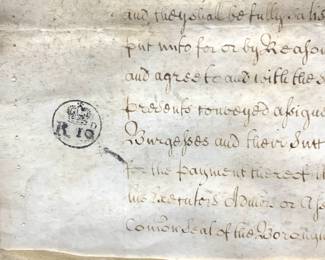 and they shall be fully satis
put unto for or by Reaso
and agree to and with the s
presents conveyed assigne
R 10 D
Burgesses and their Succ
for the payment thereof it
the Executors Admors or Asse
Comon Seal of the Borough